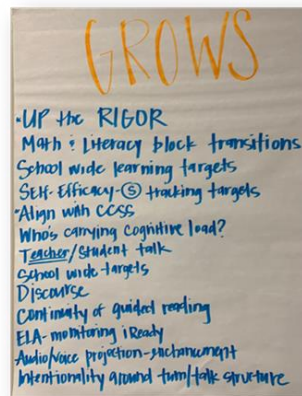 GROWS
• UP the RIGOR
Math & Literacy block transitions
School wide learning targets
Self-Efficacy-Ⓢ tracking targets
• Align with CCSS
Who's carrying cognitive load?
Teacher/Student talk
School wide targets
Discourse
Continuity of guided reading
ELA-monitoring iReady
Audio/voice projection-enchancement
Intentionality around turn/talk structure